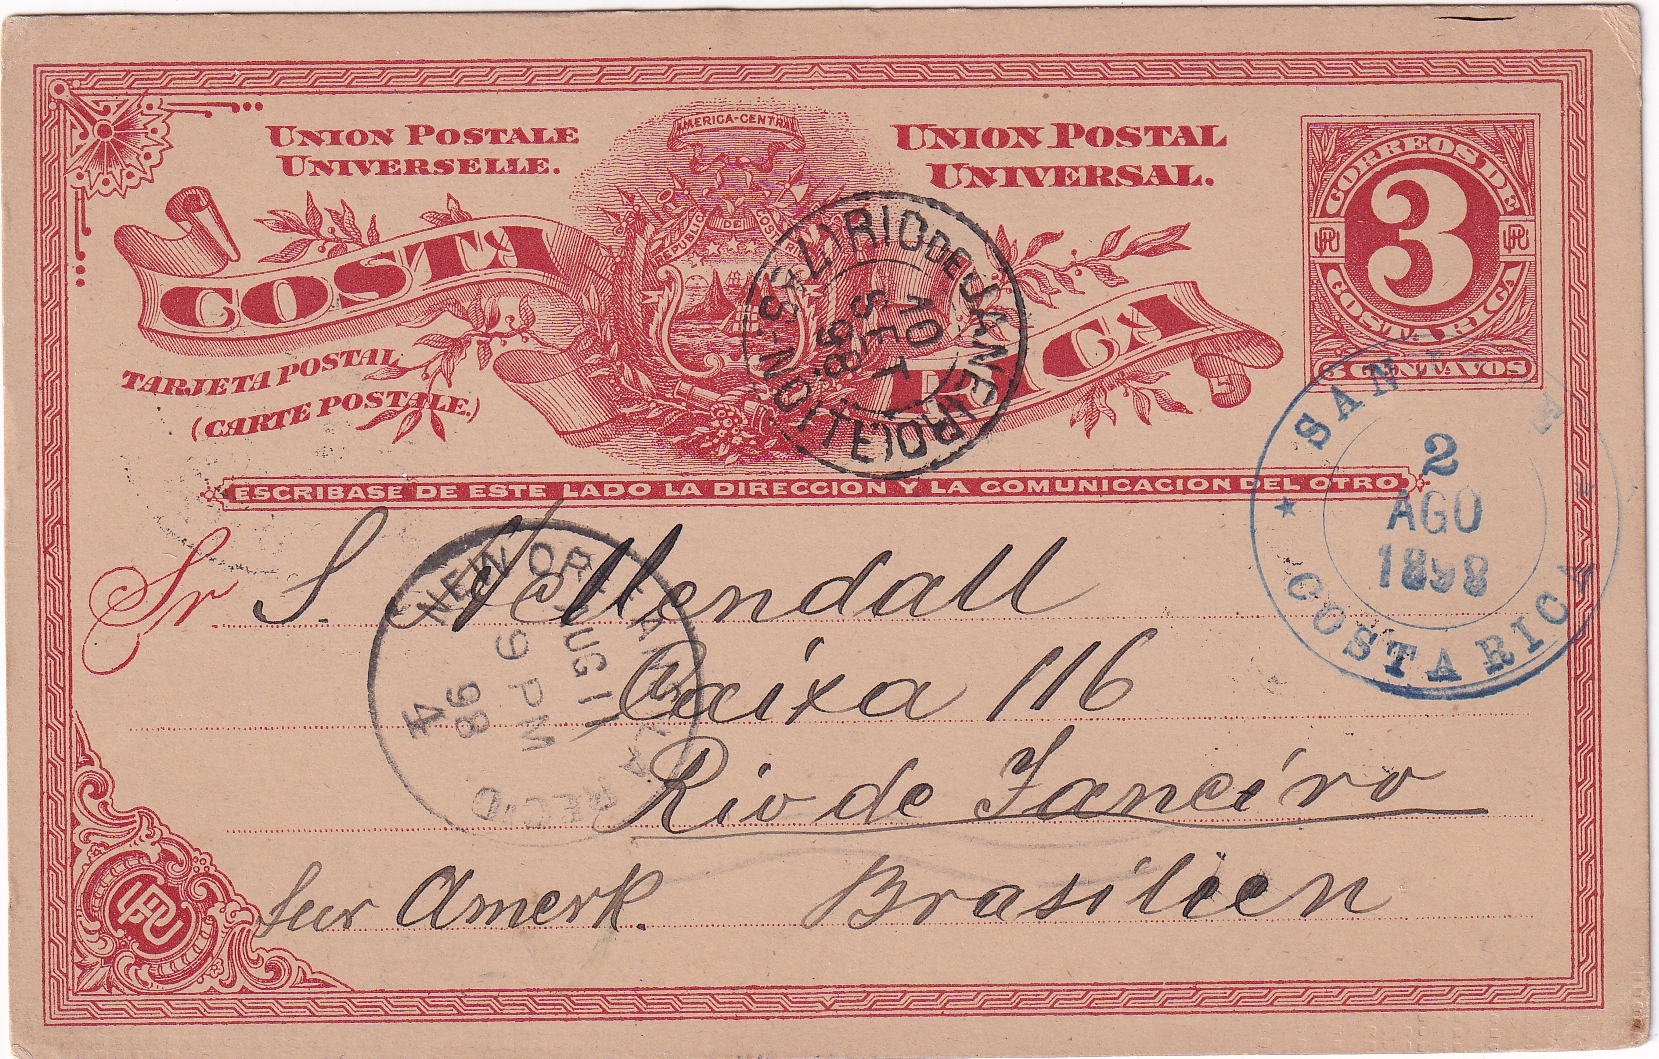 UNION POSTALE
UNIVERSELLE.
AMERICA-CENTRAL
UNION POSTAL
UNIVERSAL.
CORREOS DE
3
UPU UPU
COSTA RICA
3 CENTAVOS
REPUBLICA DE COSTA
COSTA RICA
TARJETA POSTAL
(CARTE POSTALE.)
RIO DE JANEIRO
10
SET
98
SAN JOSE
2
AGO
1898
COSTA RICA
ESCRIBASE DE ESTE LADO LA DIRECCION Y LA COMUNICACION DEL OTRO
NEW ORLEANS LA
AUG 11
9 PM
98
4
REC'D
Sr S. Mendall
Caixa 116
Rio de Janeiro
Amerk. Brasilien
UPU